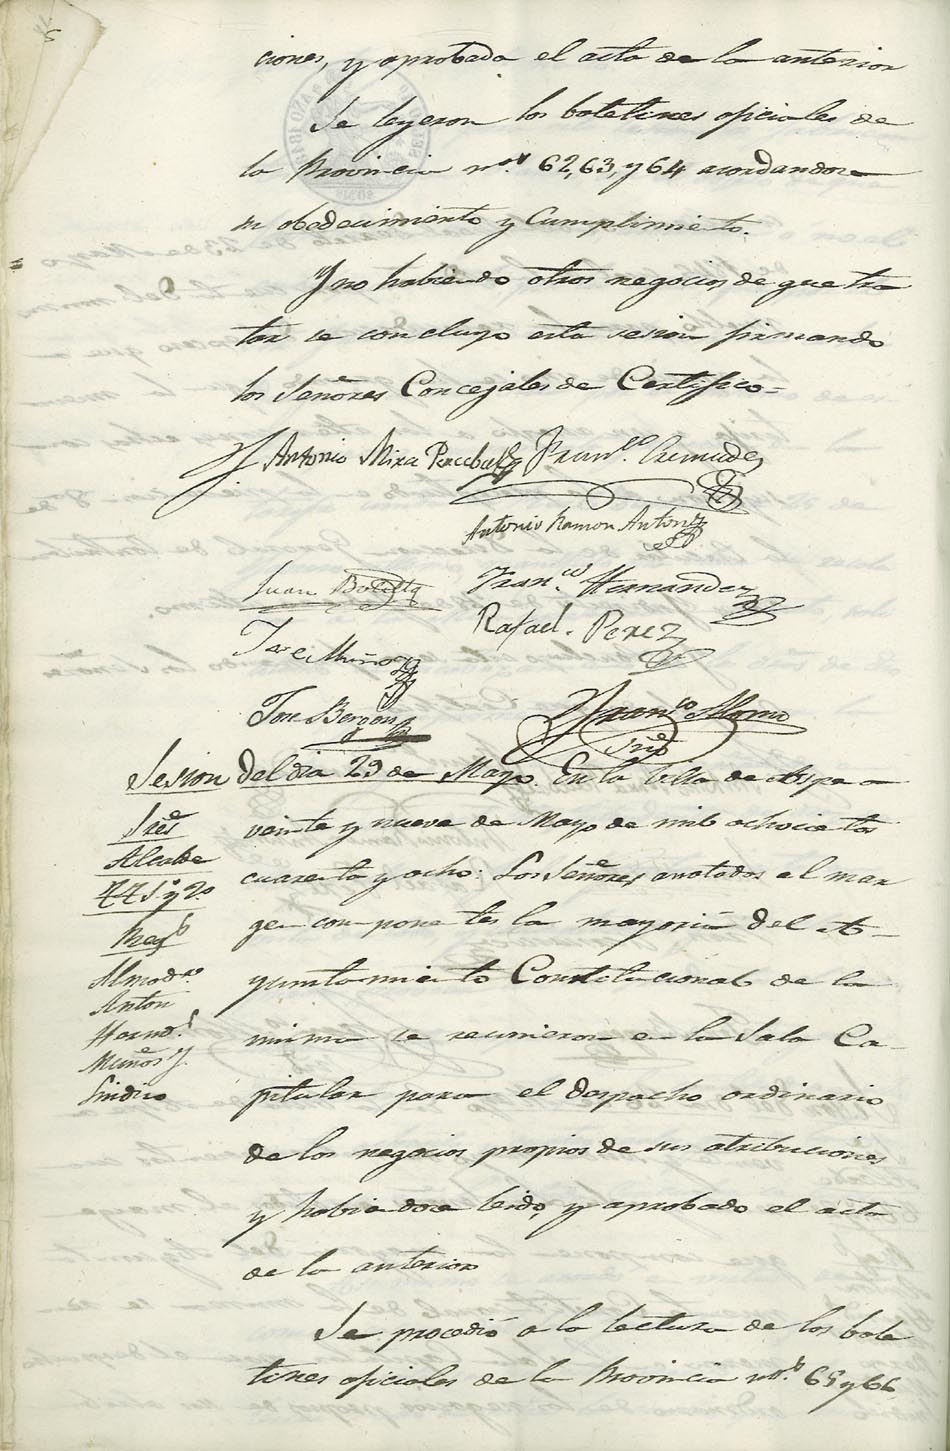 ciones, y aprobada el acta de la anterior
Se leyeron los boletines oficiales de
la Provincia nos. 62, 63, y 64 acordandose
su obedecimiento y Cumplimiento.
Y no habiendo otros negocios de que tra
tar se concluyo esta sesion firmando
los Señores Concejales de Certifico=
Antonio Mira Percebal Franco. Cremades
Antonio Ramon Anton
Juan Botella Franco. Hernandez
Jose Muñoz Rafael. Perez
Jose Bergon Franco
Srio
Sesion del dia 29 de Mayo. En la Villa de Aspe a
Sres
Alcalde
TT 1º y 2º
Regs
Almodro
Anton
Hernds
Muños y
Sindico
veinte y nueve de Mayo de mil ochocietos
cuarenta y ocho: Los Señores anotados al mar
gen componetes la mayoria del A-
yuntamieto Constitucional de la
misma se reunieron en la Sala Ca-
pitular para el despacho ordinario
de los negocios propios de sus atribuciones
y habiendose leido, y aprobado el acta
de la anterior
Se procedió a la lectura de los bole
tines oficiales de la Provincia nos. 65 y 66